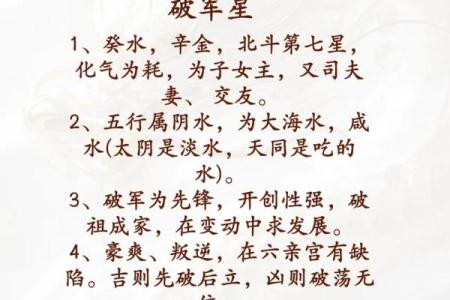 破军星
1、癸水，辛金，北斗第七星，
化气为耗，为子女主，又司夫
妻、交友。
2、五行属阴水，为大海水，咸
水(太阴是淡水，天同是吃的
水)。
3、破军为先锋，开创性强，破
祖成家，在变动中求发展。
4、豪爽、叛逆，在六亲宫有缺
陷。吉则先破后立，凶则破荡无